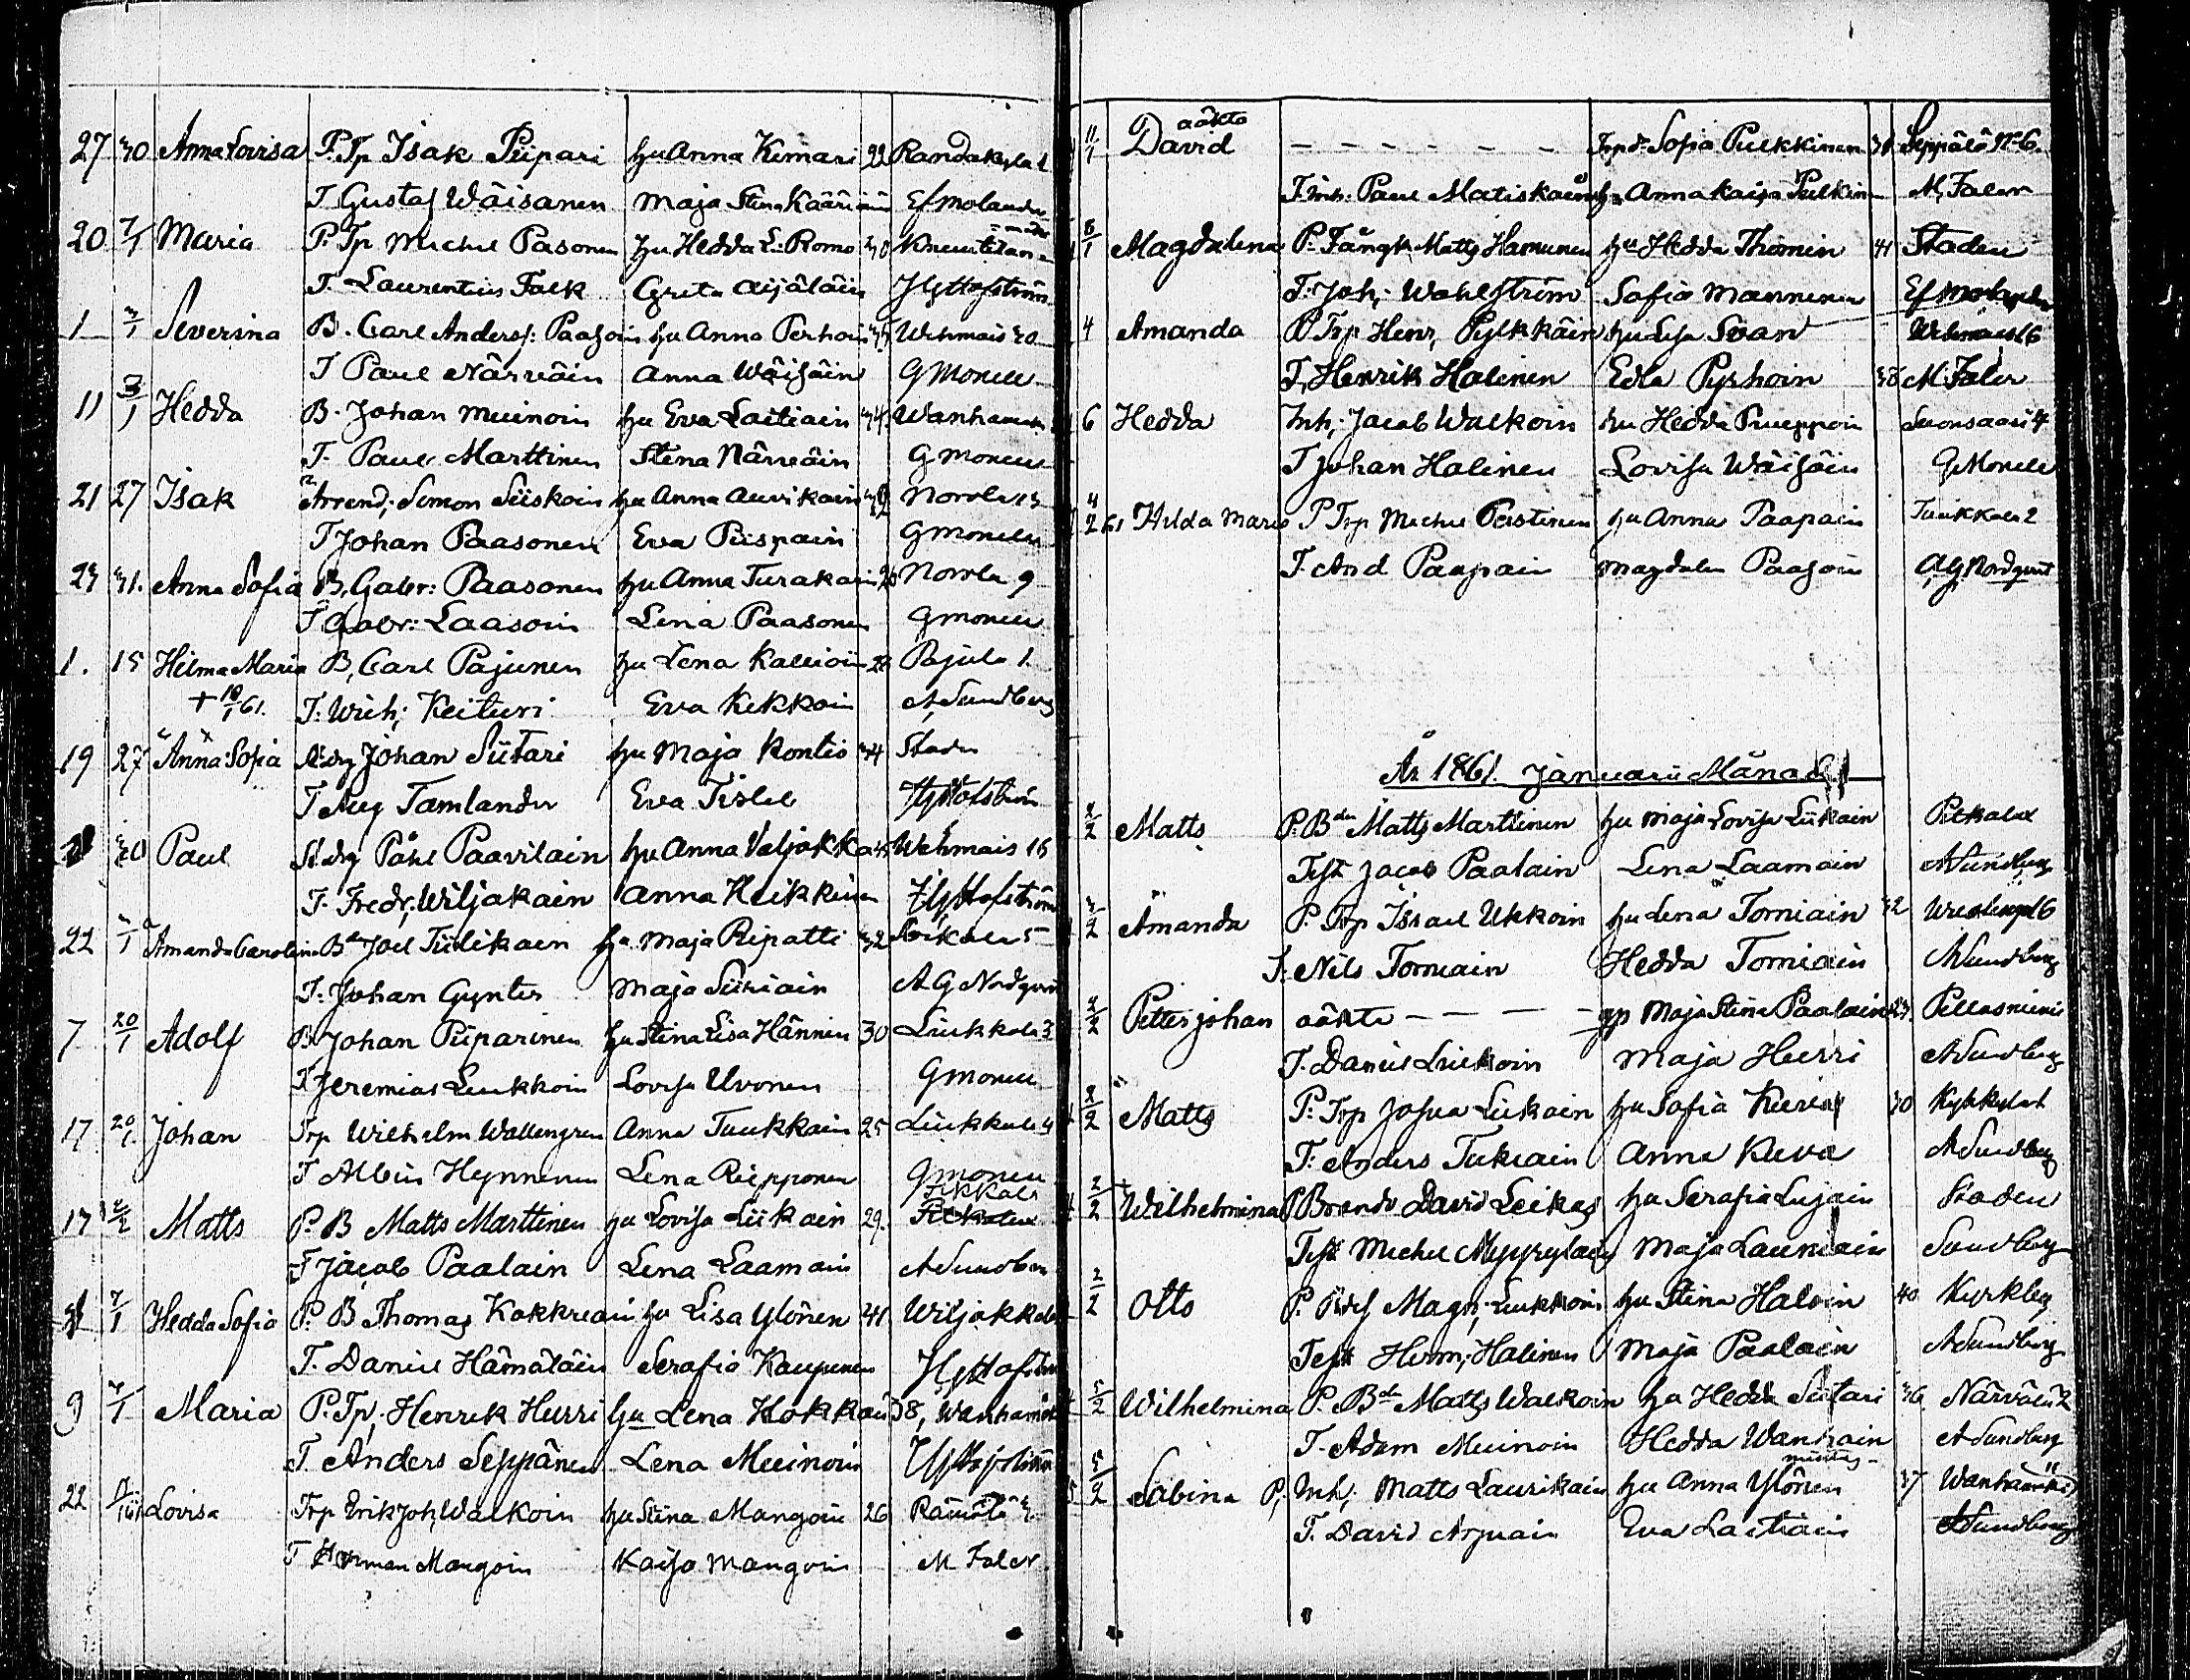 27 30 Anna Lovisa P. Tp Isak Piipari hu Anna Kimari 22 Randakyla 1
T Gustaf Wäisänen Maja Stina Kääriäin Ef Molander
20 7/1 Maria P. Tp Michel Pasonen hu Hedda L: Romo 30
T. Laurentius Falk Greta Aijäläin HG Hofström
1 3/1 Severina B. Carl Anders: Paasoin hu Anna Perhoin Wehmais 20
T Paul Närreäin Anna Wäisäin G Monell
11 3/1 Hedda B. Johan Muinoin hu Eva Laitiain 34 Wanham
T. Paul Marttinen Stina Närreäin G Monell
21 27 Isak Arrend: Simon Siiskoin hu Anna Auvikain Norola 13
T Johan Paasonen Eva Piispain G Monell
23 31. Anna Sofia B. Gabr: Paasonen hu Anna Turakain 20 Norola 9
T Gabr: Laasoin Lena Paasonen G Monell
1. 15 Hilma Maria B, Carl Pajunen hu Lena Kallioin 22 Pajula 1.
+ 10/1 61. T: Wilh; Keituri Eva Kekkoin A Sundberg
19 27 Anna Sofia Johan Siitari hu Maja Kontio 34 Staden
T Aug Tamlander Eva Tislel HG Hofström
30 Paul Påhl Paavilain hu Anna Valjakka 45 Wehmais 16
T. Fredr, Wiljakain Anna Heikkinen HG Hofström
22 3/1 Amanda Carolina Bd Joel Tiilikain hu Maja Ripatti 32 Soikala 5
T. Johan Gynter Maja Siiriain A G Nordqvist
7 20/1 Adolf B Johan Piiparinen hu Stina Lisa Hännin 30 Liukkola 3
T Jeremias Leukkoin Lovisa Uvonen G Monell
17 20/1. Johan Trp Wilhelm Wallengren Anna Tuukkain 25 Liukkola 4
T Albin Hynninen Lena Riepponen G Monell
Pekkala
17 2/2 Matts P. B Matts Marttinen hu Lovisa Liikain 29.
T Jacob Paalain Lena Laamain A Sundberg
7/1 Hedda Sofia P. B Thomas Kokkreain hu Lisa Ylönen 41 Wiljakkala
T. Daniel Hämäläin Serafia Kaupinen HG Hofström
9 7/1 Maria P. Tp, Henrik Hurri hu Lena Hokkain 38, Wanhamäk
T. Anders Seppänen Lena Muinoin HG Hofström
22 Lovisa Trp Erik Joh, Walkoin hu Stina Mangoin 26 Rämälä
T Herman Mangoin Kaisa Mangoin M Faler
oäkta
11/1 David – – – – – – Trpdr Sofia Pulkkinen 31 Seppälä No 6.
T. Inh: Paul Matiskain hu Anna Kaisa Pulkinen M, Faler
8/1 Magdalena P. Fångk Matts Hamunen hu Hedda Thomin 41 Staden
T. Joh; Wahlström Sofia Manninen Ef Molander
4 Amanda P Trp Henr, Pylkkäin hu Lisa Svan Wehmais 6
T, Henrik Halinen Edla Pyrhoin 38 M. Faler
6 Hedda Inh,: Jacob Walkoin hu Hedda Prueppoin Suonsaari 4
T Johan Halinen Lovisa Wäisäin G Monell
4/2 61 Hilda Maria P Trp Michel Pastinen hu Anna Paapain Tuukkala 2
T. And Paapain Magdalen Paasoin A G Nordqvist
År 1861. Januarii Månad
2/2 Matts P. Bdn Matts Marttinen hu Maja Lovisa Liikain Pekkala
Test Jacob Paalain Lena Laamain A Sundberg
3/2 Amanda P. Trp Israel Ukkoin hu Lena Torniain 32
T. Nils Torniain Hedda Torniain A Sundberg
2/2 Petter Johan oäkta – – – – gp Maja Stina Paalain 23. Pellosniemi
T. Daniel Liukoin Maja Hurri A Sundberg
2/2 Matts P. Trp Josua Liikain hu Sofia Kuria 30
T. Anders Tukiain Anna Kuva A Sundberg
2/2 Wilhelmina P Brandv David Leikas hu Serafia Lujain Staden
Test Michel Myyryläin Maja Launiain Sundberg
2/2 Otto P. Magn; Leukkoin hu Stina Haloin 40 Kyrkby
Test Herm; Halinen Maja Paalain A Sundberg
5/2 Wilhelmina P. Bdn Matts Walkoin hu Hedda Siitari 36 Närväin 2
T. Adam Muinoin Hedda Wanhain A Sundberg
5/2 Sabina P, Inh; Matts Laurikain hu Anna Ylönen 37 Wanhamäki
T. David Arpiain Eva Laitiain A Sundberg